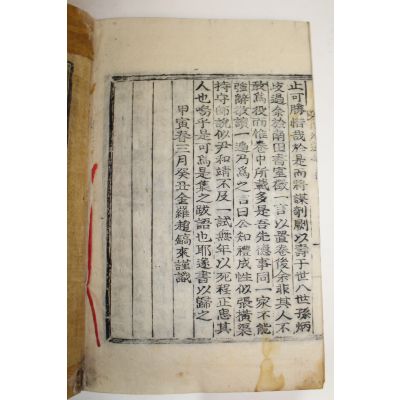 止可勝惜哉於是而將謀剞劂以壽于世八世孫炳
過余於南田書室徵一言以置卷後余非其人不
敢爲役而惟卷中所載多是吾先德事同一家不能
強辭敬讀一遍乃爲之言曰公知禮成性似張橫渠
持守師說似尹和靖不及一試無年以死程正思其
人也嗚乎是可爲是集之跋語也耶遂書以歸之
甲寅春三月癸丑金羅趙鎬來謹識